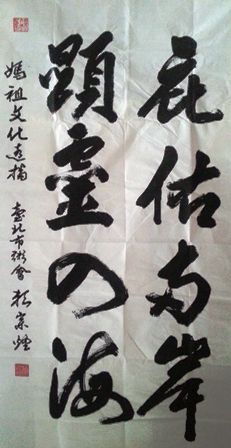 庇佑兩岸
顯靈四海
媽祖文化遺摘
臺北市術會 程宗煙